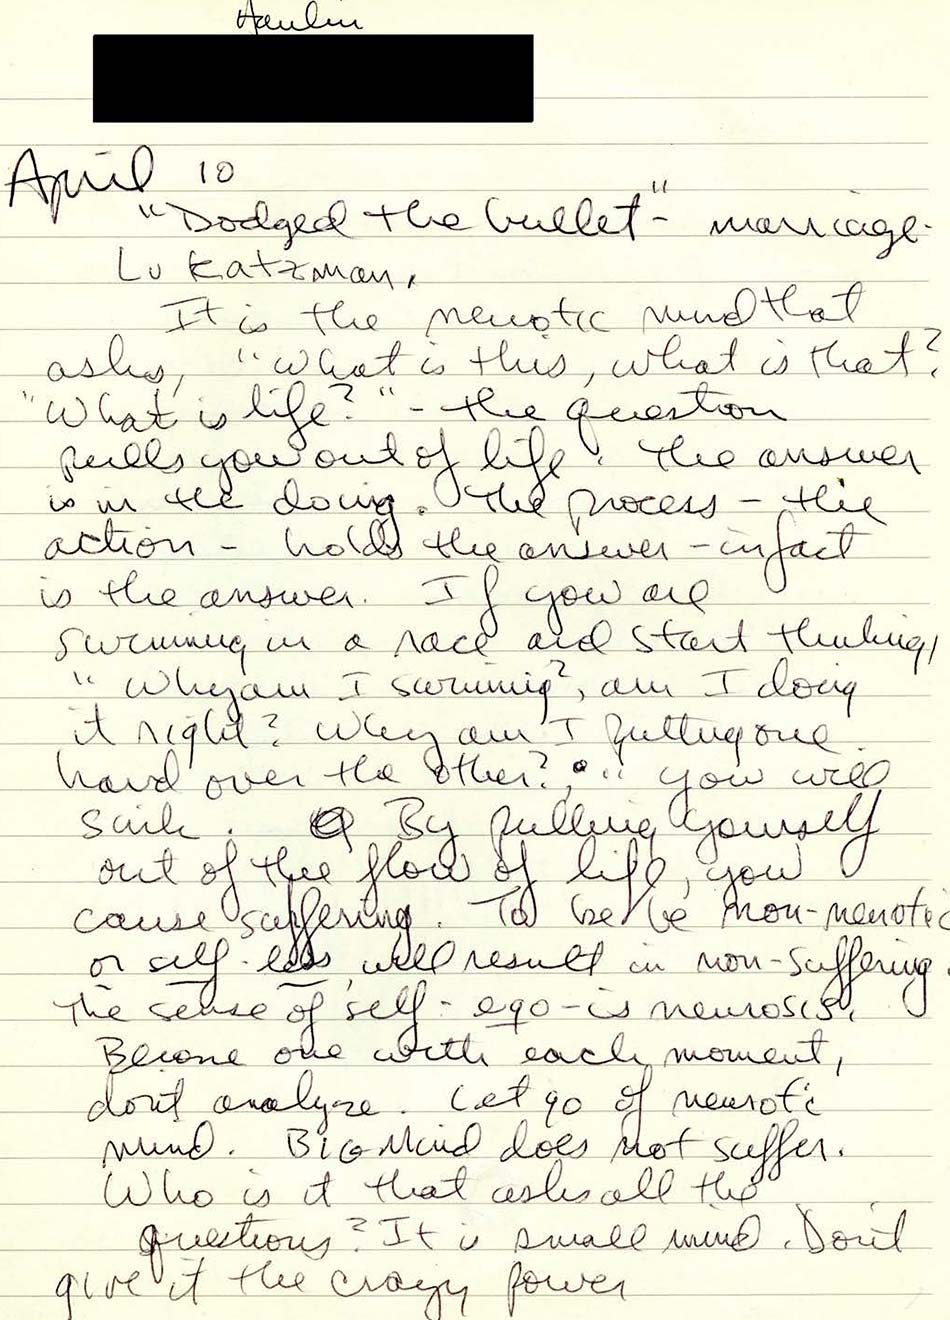 April 10
"Dodged the bullet"- marriage.
Lu Katzman,
It is the neurotic mind that
asks, "What is this, what is that?
"What is life?" - the question
pulls you out of life. The answer
is in the doing. The process - the
action - holds the answer - in fact
is the answer. If you are
swimming in a race and start thinking,
" Why am I swimming?, am I doing
it right? Why am I putting one
hand over the other?," you will
sink. By pulling yourself
out of the flow of life, you
cause suffering. To be be non-neurotic
or self-less, will result in non-suffering.
The sense of self - ego - is neurosis.
Become one with each moment,
don't analyze. Let go of neurotic
mind. BIG Mind does not suffer.
Who is it that asks all the
questions? It is small mind. Don't
give it the crazy power